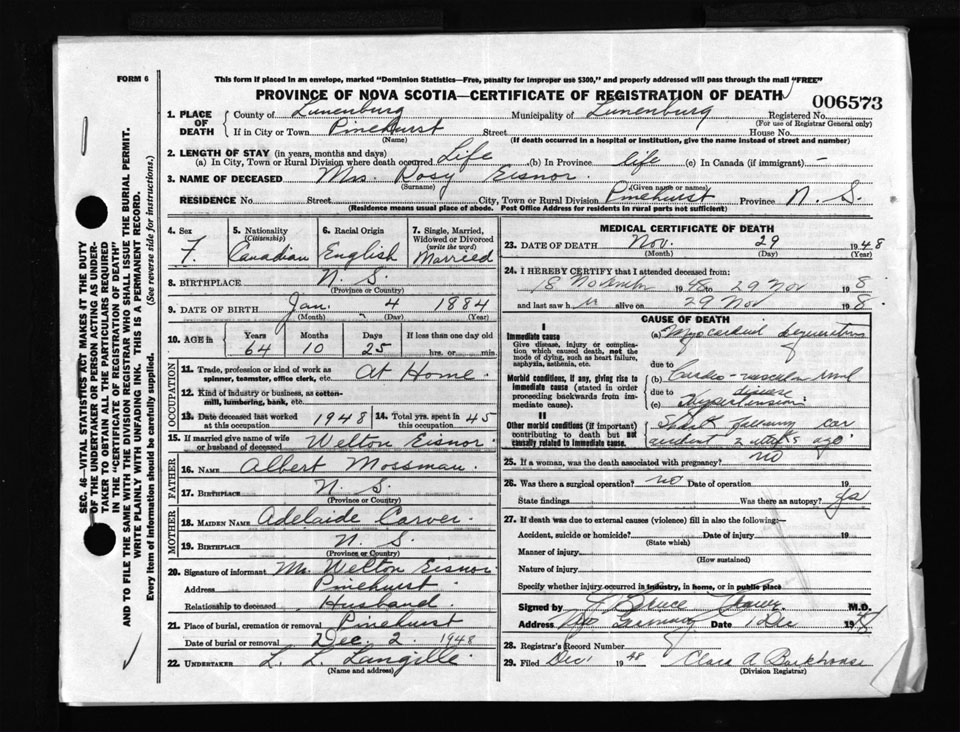 FORM 6
This form if placed in an envelope, marked "Dominion Statistics—Free, penalty for improper use $300," and properly addressed will pass through the mail "FREE"
PROVINCE OF NOVA SCOTIA—CERTIFICATE OF REGISTRATION OF DEATH
006573
1. PLACE OF DEATH
County of Lunenburg Municipality of Lunenburg Registered No.
(For use of Registrar General only)
If in City or Town Pinehurst Street House No.
(Name) (If death occurred in a hospital or institution, give the name instead of street and number)
2. LENGTH OF STAY (in years, months and days)
(a) In City, Town or Rural Division where death occurred Life (b) In Province life (c) In Canada (if immigrant) —
3. NAME OF DECEASED Mrs. Rosy Eisnor.
(Surname) (Given name or names)
RESIDENCE No. Street City, Town or Rural Division Pinehurst Province N. S.
(Residence means usual place of abode. Post Office Address for residents in rural parts not sufficient)
4. Sex F.
5. Nationality (Citizenship) Canadian
6. Racial Origin English
7. Single, Married, Widowed or Divorced (write the word) Married
8. BIRTHPLACE N. S.
(Province or Country)
9. DATE OF BIRTH Jan. 4 1884
(Month) (Day) (Year)
10. AGE in Years 64 Months 10 Days 25 If less than one day old hrs. or min.
OCCUPATION
11. Trade, profession or kind of work as spinner, teamster, office clerk, etc. At Home.
12. Kind of industry or business, as cotton-mill, lumbering, bank, etc.
13. Date deceased last worked at this occupation 1948 14. Total yrs. spent in this occupation 45
15. If married give name of wife or husband of deceased Welton Eisnor.
FATHER
16. NAME Albert Mossman.
17. BIRTHPLACE N. S.
(Province or Country)
MOTHER
18. MAIDEN NAME Adelaide Carver.
19. BIRTHPLACE N. S.
(Province or Country)
20. Signature of informant Mr. Welton Eisnor.
Address Pinehurst.
Relationship to deceased Husband.
21. Place of burial, cremation or removal Pinehurst
Date of burial or removal Dec. 2. 1948
22. UNDERTAKER L. L. Langille.
(Name and address)
MEDICAL CERTIFICATE OF DEATH
23. DATE OF DEATH Nov. 29 1948
(Month) (Day) (Year)
24. I HEREBY CERTIFY that I attended deceased from:
18 November 1948 to 29 Nov 1948
and last saw her alive on 29 Nov 1948.
CAUSE OF DEATH
I
Immediate cause
Give disease, injury or complication which caused death, not the mode of dying, such as heart failure, asphyxia, asthenia, etc.
(a) Myocardial
due to
Morbid conditions, if any, giving rise to immediate cause (stated in order proceeding backwards from immediate cause).
(b) Cardio-vascular renal disease
due to
(c) Hypertension
II
Other morbid conditions (if important) contributing to death but not causally related to immediate cause.
car accident 2 ago
25. If a woman, was the death associated with pregnancy? no
26. Was there a surgical operation? no Date of operation 19
State findings Was there an autopsy?
27. If death was due to external causes (violence) fill in also the following:—
Accident, suicide or homicide? Date of injury 19
(State which)
Manner of injury
(How sustained)
Nature of injury
Specify whether injury occurred in industry, in home, or in public place
Signed by Bruce M.D.
Address Date 1 Dec 1948
28. Registrar's Record Number
29. Filed Dec 1 1948 Clara A. Barkhouse
(Division Registrar)
SEC. 46—VITAL STATISTICS ACT MAKES IT THE DUTY
OF THE UNDERTAKER OR PERSON ACTING AS UNDER-
TAKER TO OBTAIN ALL THE PARTICULARS REQUIRED
IN THE "CERTIFICATE OF REGISTRATION OF DEATH"
AND TO FILE THE SAME WITH THE DIVISION REGISTRAR WHO SHALL ISSUE THE BURIAL PERMIT.
WRITE PLAINLY WITH UNFADING INK. THIS IS A PERMANENT RECORD.
Every item of information should be carefully supplied. (See reverse side for instructions.)